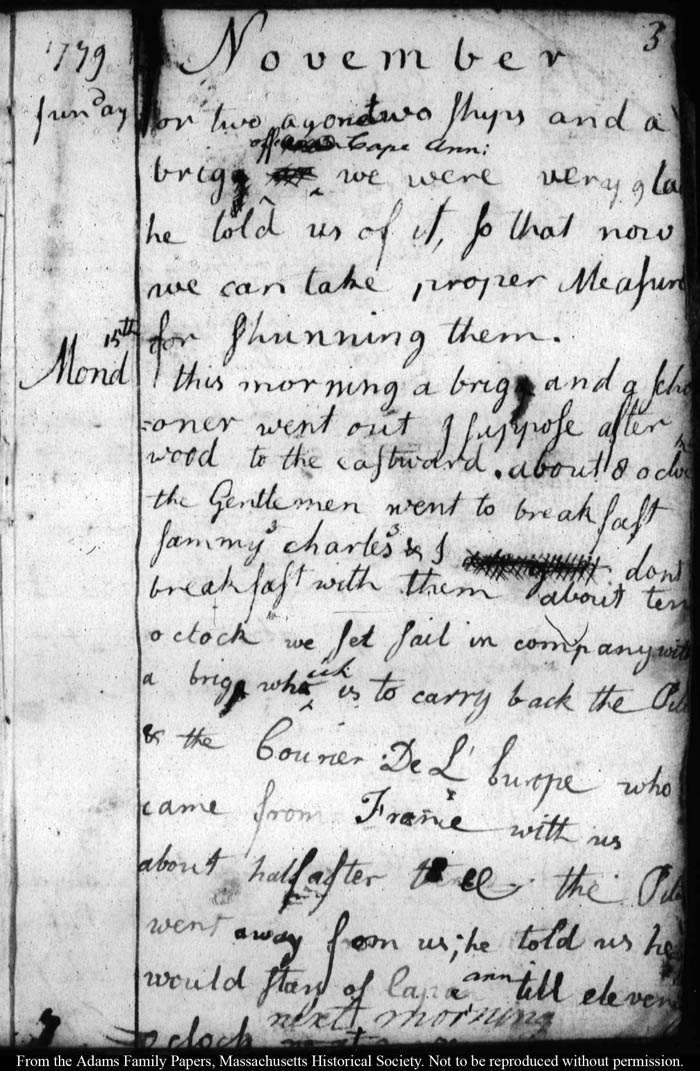 1779 November 3
Sunday for two agon two ships and a
off Cape Ann:
brigg we were very gla
he told us of it, so that now
we can take proper Measure
for shunning them.
Mond 15th this morning a brigg and a scho
oner went out I suppose after
wood to the eastward. about 8 oclo
the Gentlemen went to breakfast
Sammy charles & I dont
breakfast with them about ten
oclock we set sail in company with
a brigg which is to carry back the Pil
& the Courier De L'Europe who
came from France with us
about half after the Pil
went away from us; he told us he
would stan of Capa ann till eleven
next morning
oclock
From the Adams Family Papers, Massachusetts Historical Society. Not to be reproduced without permission.